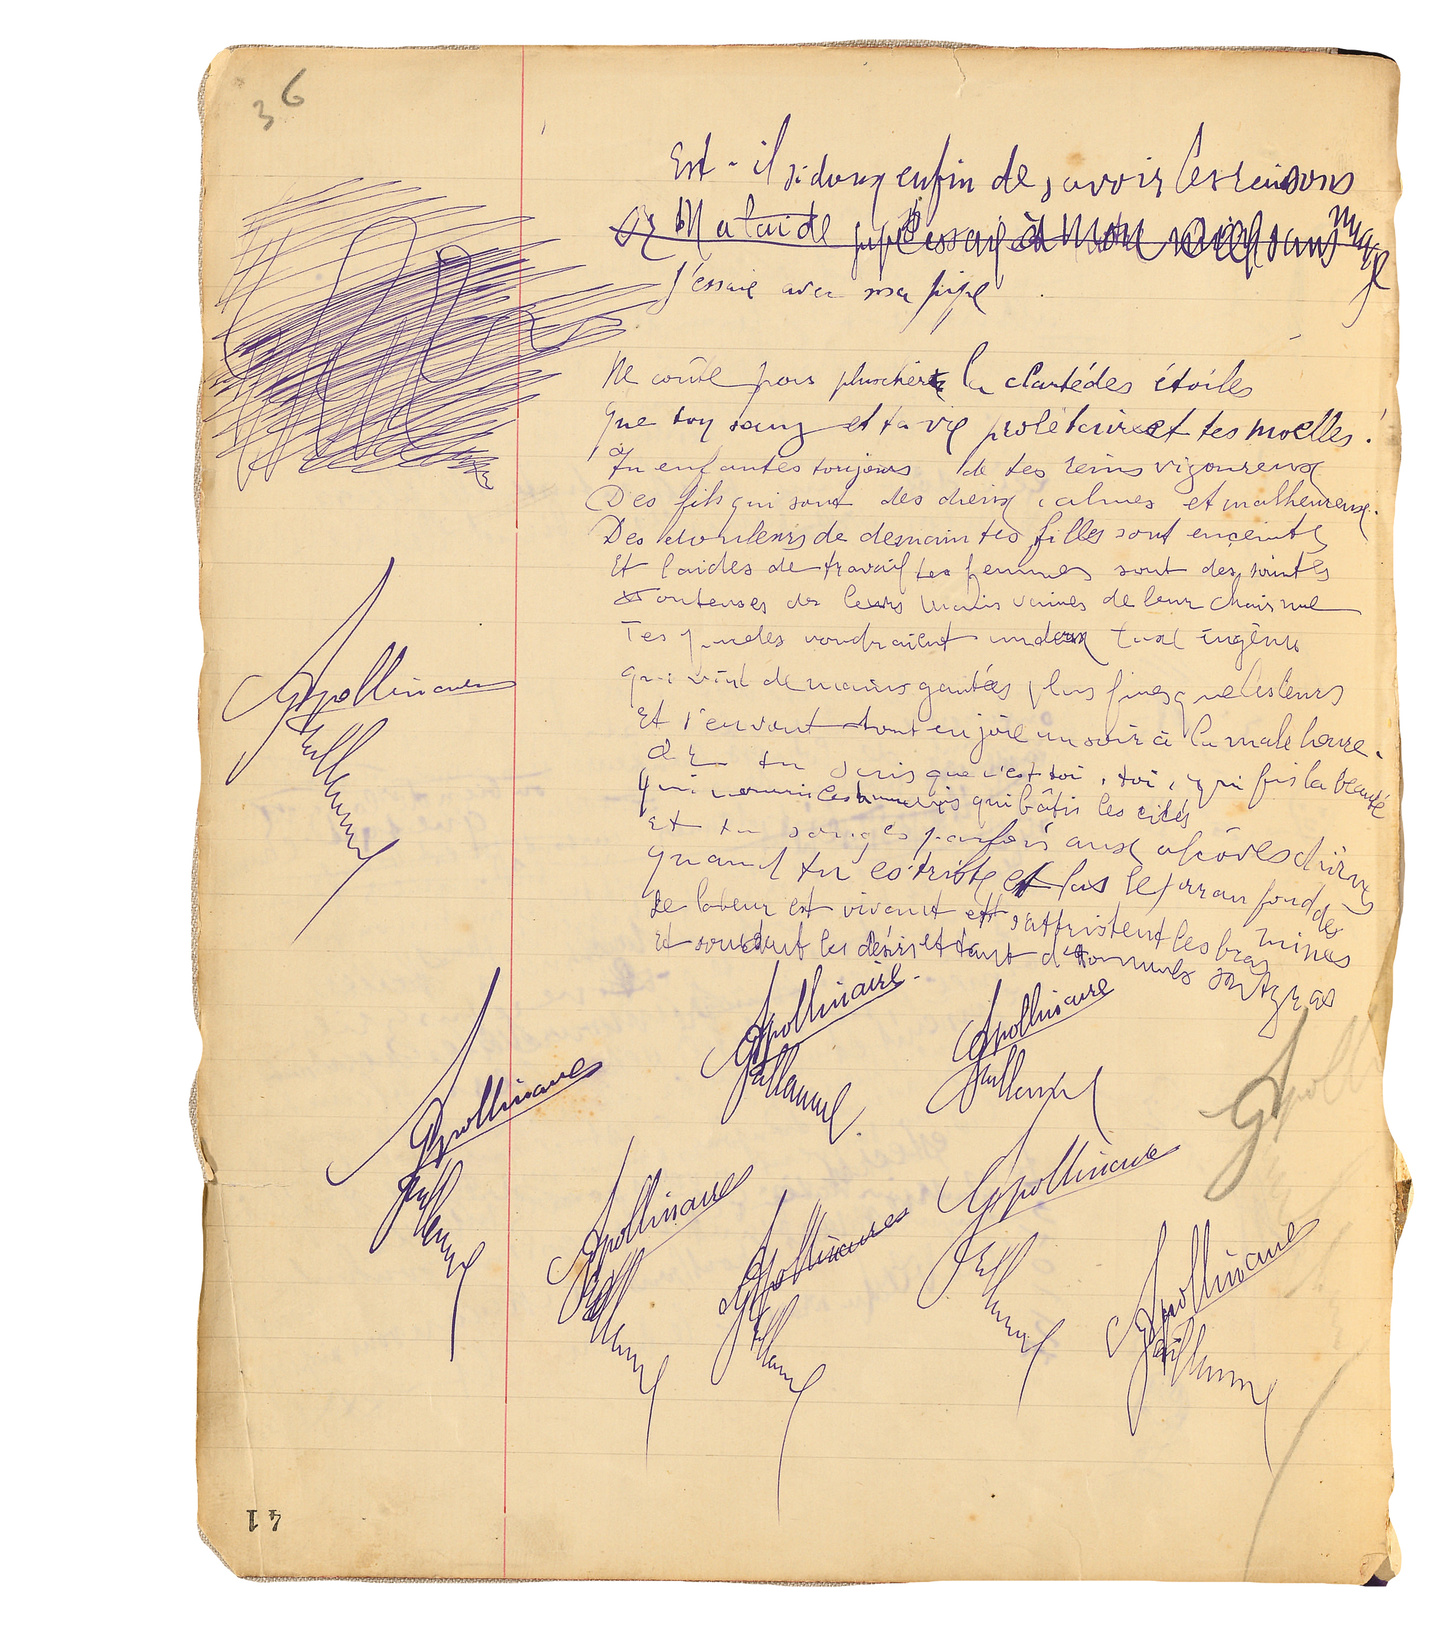 36
Est-il si doux enfin de savoir les raisons
Or Malaide pipe essaie à mon
J'essaie avec ma pipe
Ne coûte pas plus cher la clarté des étoiles
Que ton sang et ta vie prolétaire et tes moelles !
Tu enfantes toujours de tes reins vigoureux
Des fils qui sont des dieux calmes et malheureux.
Des douleurs de demain tes filles sont enceintes
Et laides de travail tes femmes sont des saintes
Honteuses de leurs mains vaines de leur chair nue
Tes pucelles voudraient un doux luxe ingénu
Qui vînt de mains gantées plus fines que les leurs
Et s'en vont tout en joie un soir à la male heure.
Or tu sais que c'est toi, toi, qui fis la beauté
Qui nourris les humains qui bâtis les cités
Et tu songes parfois aux alcôves divines
Quand tu es triste et las le jour au fond des mines
Le labeur est vivant et s'attristent les bras
Et sourdent les désirs et tant d'hommes sont gras
Apollinaire
Guillaume
Apollinaire
Guillaume
Apollinaire
Guillaume
Apollinaire
Guillaume
Apollinaire
Guillaume
Apollinaire
Guillaume
Apollinaire
Guillaume
Apollinaire
Guillaume
Apolli
41